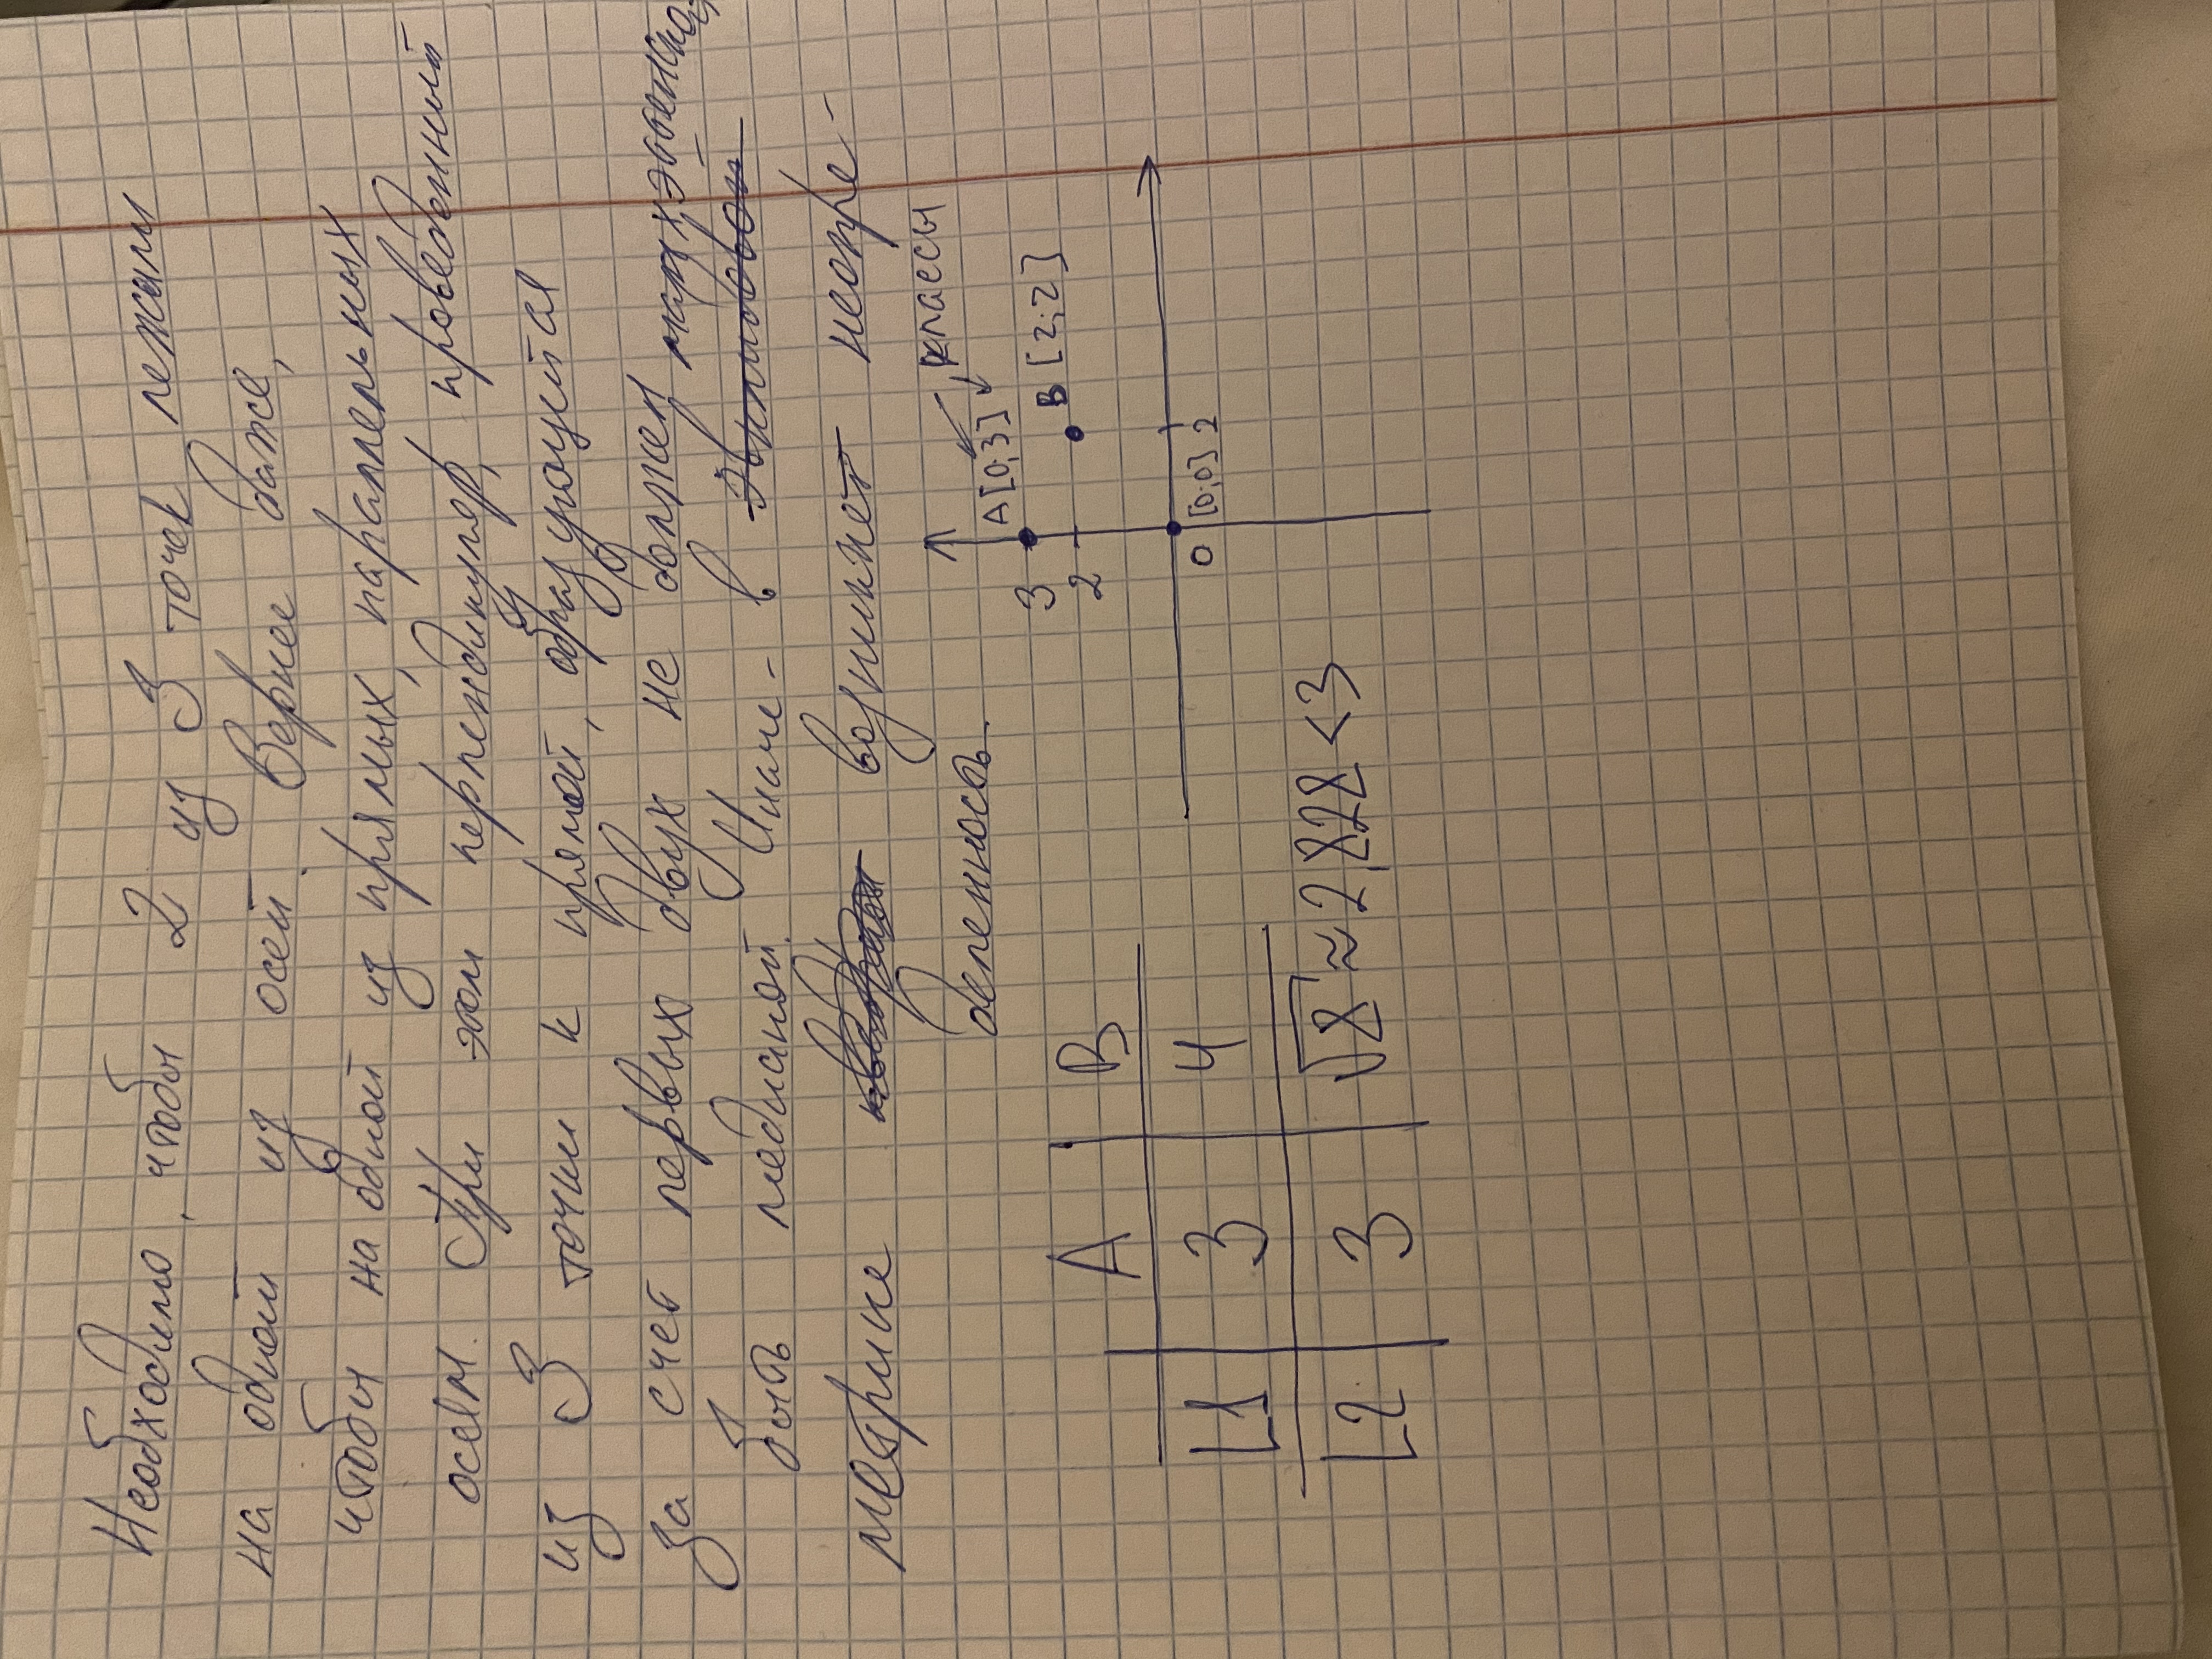 Необходимо, чтобы 2 из 3 точек лежали
на одной из осей. Вернее даже,
чтобы на одной из прямых, параллельных
осям. При этом перпендикуляр, проведенный
из 3 точки к прямой, образующейся
за счет первых двух не должен манхэттенской
быть медианой. Иначе - в эвклидовой
метрике возникнет неопре-
деленность.
классы
A [0;3]
3
B [2;2]
2
O [0;0] 2
A B
L1 3 4
L2 3 √8 ≈ 2,828 < 3